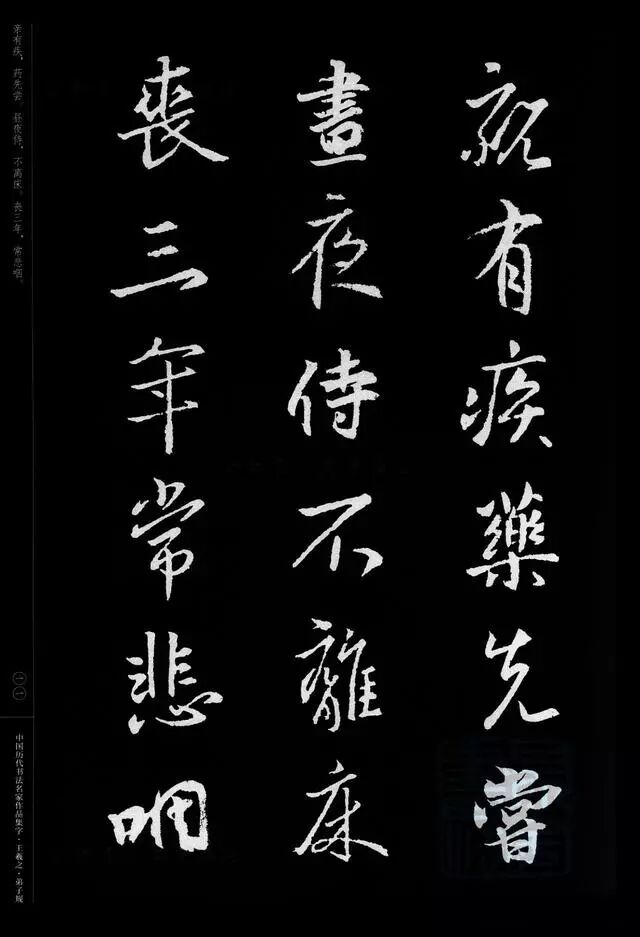 親有疾藥先嘗
晝夜侍不離床
喪三年常悲咽
亲有疾，药先尝。昼夜侍，不离床。丧三年，常悲咽。
一一
中国历代书法名家作品集字·王羲之·弟子规